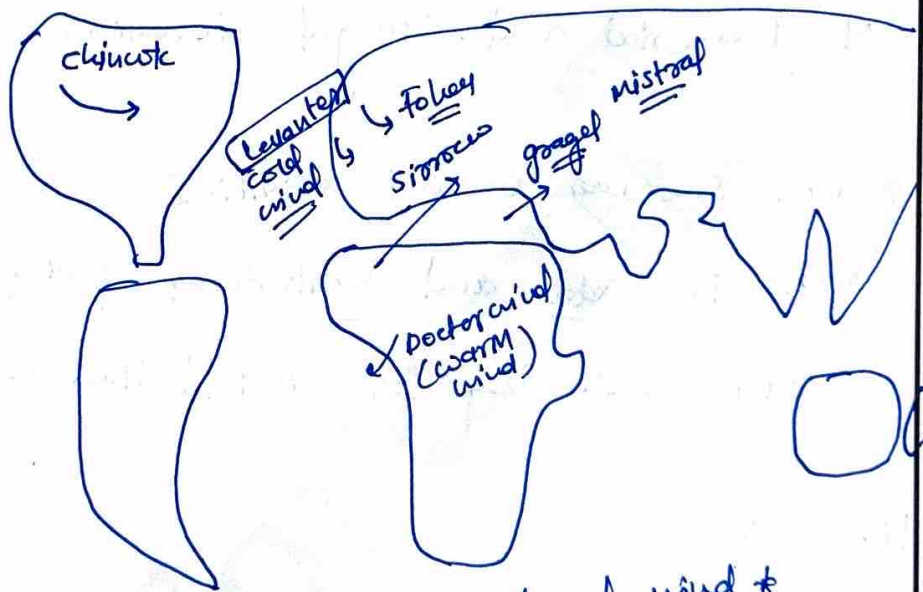 chinook
Levanter
cold
wind
Fohen
sirrocco
gragel
Mistral
Doctor wind
(warm
wind)
wind *